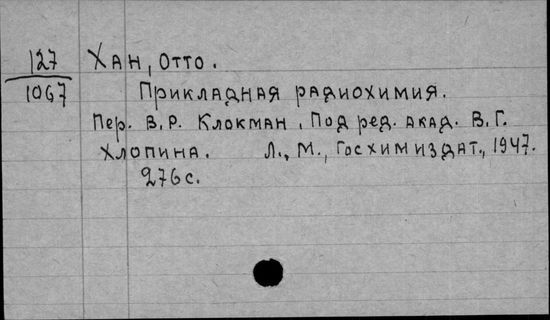 127 Хан, Отто.
1067 Прикладная радиохимия.
Пер. В.Р. Клокман. Под ред. акад. В.Г.
Хлопина. Л., М., Госхимиздат., 1947.
276 с.